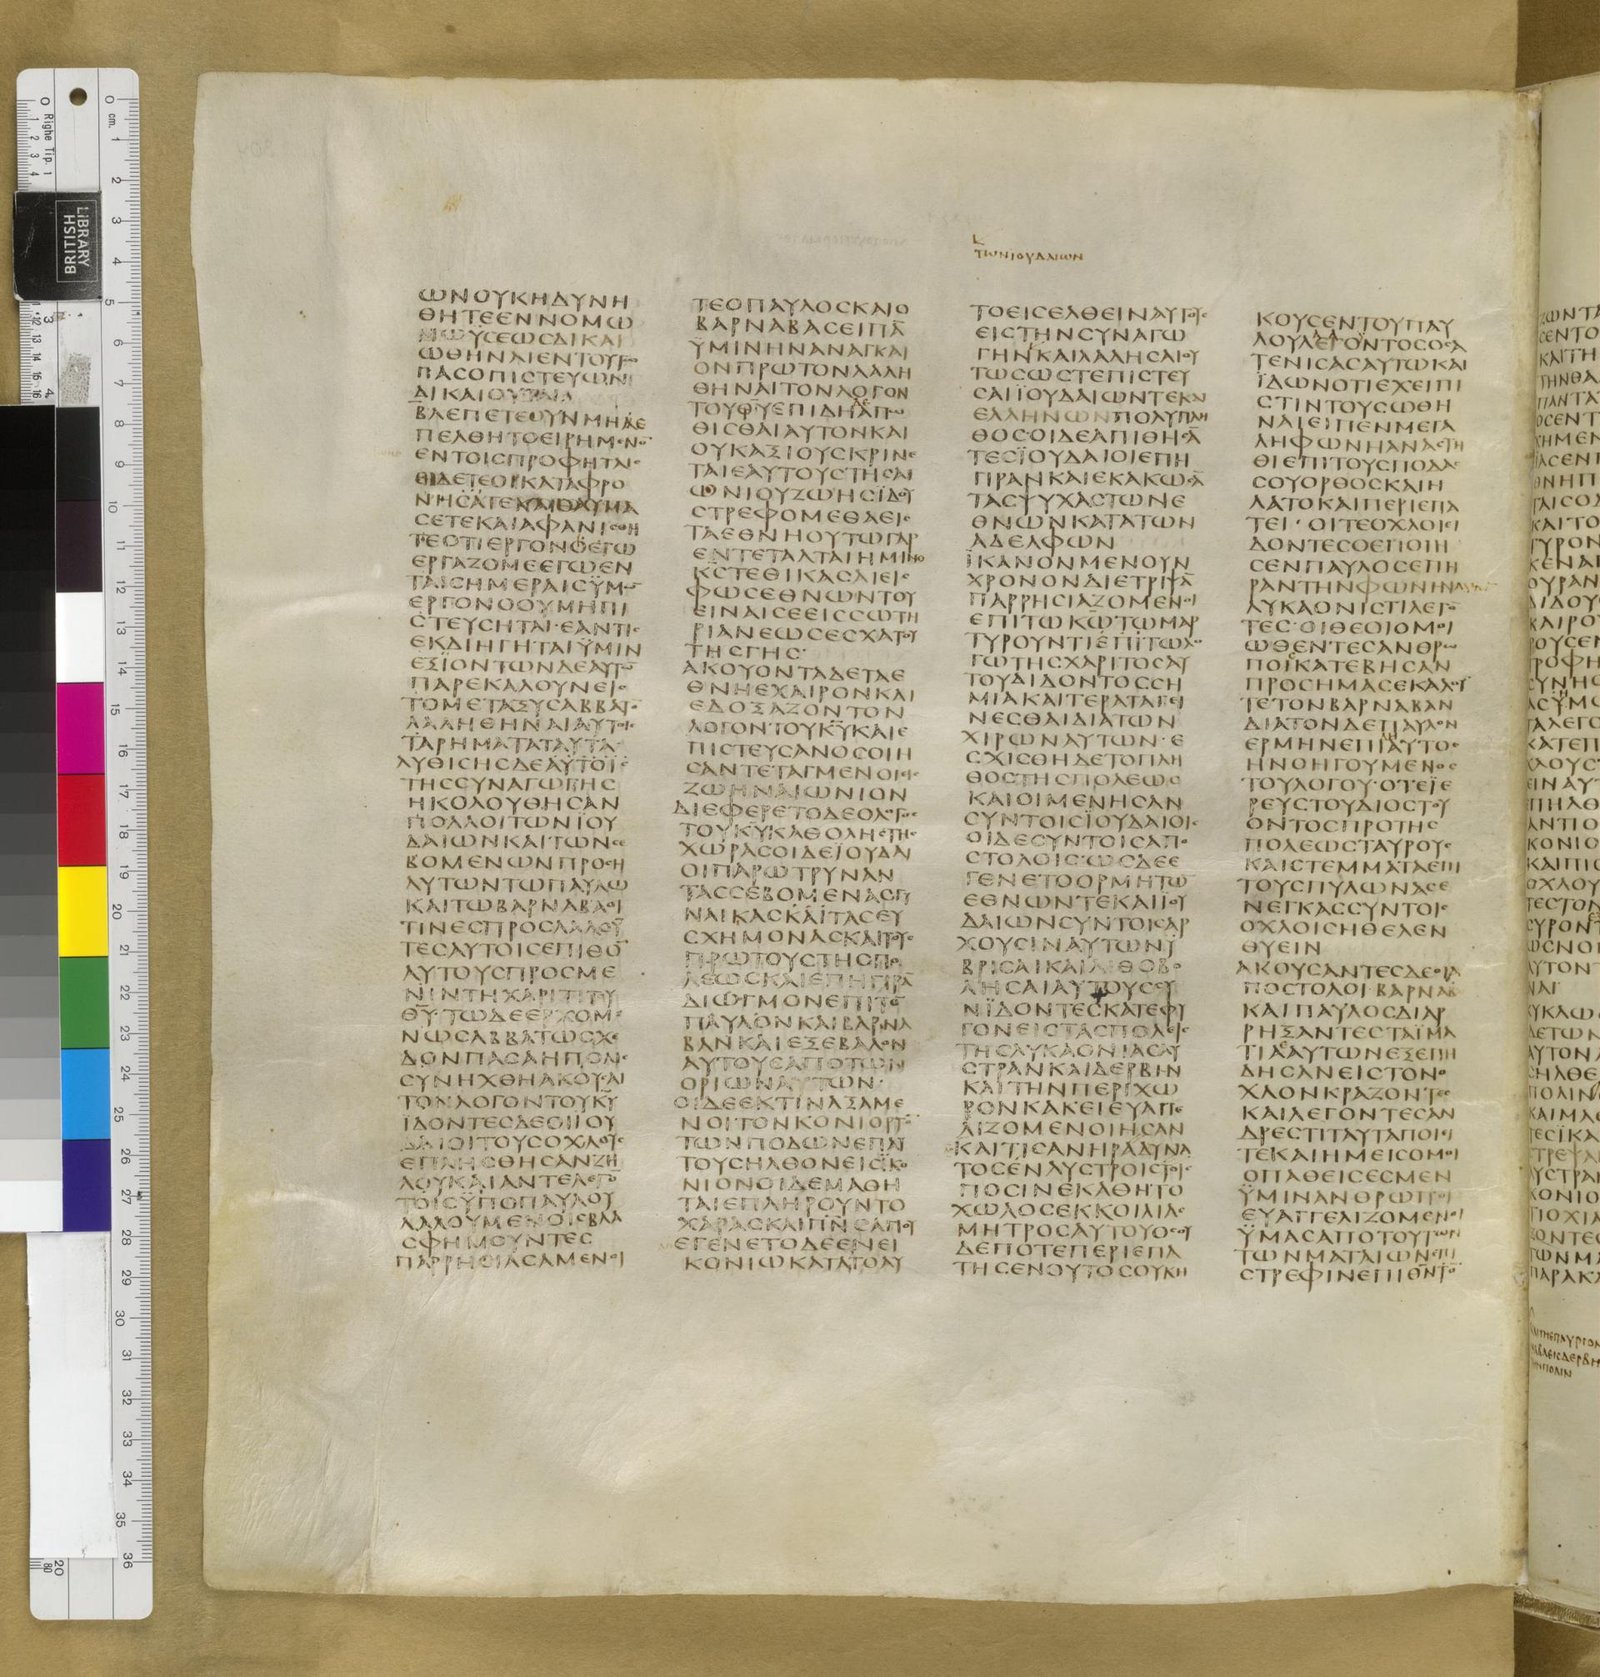 ΤΩΝΙΟΥΔΑΙΩΝ
ΩΝΟΥΚΗΔΥΝΗ
ΘΗΤΕΕΝΝΟΜΩ
ΜΩΥΣΕΩΣΔΙΚΑΙ
ΩΘΗΝΑΙΕΝΤΟΥΤΩ
ΠΑΣΟΠΙΣΤΕΥΩΝ
ΔΙΚΑΙΟΥΤΑΙ
ΒΛΕΠΕΤΕΟΥΝΜΗ
ΠΕΛΘΗΤΟΕΙΡΗΜΕΝΟ
ΕΝΤΟΙΣΠΡΟΦΗΤΑΙΣ
ΙΔΕΤΕΟΙΚΑΤΑΦΡΟ
ΝΗΤΑΙΚΑΙΘΑΥΜΑ
ΣΕΤΕΚΑΙΑΦΑΝΙΣΘΗ
ΤΕΟΤΙΕΡΓΟΝΟΕΓΩ
ΕΡΓΑΖΟΜΕΕΓΩΕΝ
ΤΑΙΣΗΜΕΡΑΙΣΫΜΩ
ΕΡΓΟΝΟΟΥΜΗΠΙ
ΣΤΕΥΣΗΤΑΙ·ΕΑΝΤΙΣ
ΕΚΔΙΗΓΗΤΑΙΫΜΙΝ
ΕΞΪΟΝΤΩΝΔΕΑΥΤΩ
ΠΑΡΕΚΑΛΟΥΝΕΙΣ
ΤΟΜΕΤΑΞΥΣΑΒΒΑΤΟ
ΛΑΛΗΘΗΝΑΙΑΥΤΟΙΣ
ΤΑΡΗΜΑΤΑΤΑΥΤΑ
ΛΥΘΙΣΗΣΔΕΑΥΤΟΙΣ
ΤΗΣΣΥΝΑΓΩΓΗΣ
ΗΚΟΛΟΥΘΗΣΑΝ
ΠΟΛΛΟΙΤΩΝΙΟΥ
ΔΑΙΩΝΚΑΙΤΩΝΣΕ
ΒΟΜΕΝΩΝΠΡΟΣΗ
ΛΥΤΩΝΤΩΠΑΥΛΩ
ΚΑΙΤΩΒΑΡΝΑΒΑΟΙ
ΤΙΝΕΣΠΡΟΣΛΑΛΟΥ
ΤΕΣΑΥΤΟΙΣΕΠΙΘΟ
ΑΥΤΟΥΣΠΡΟΣΜΕ
ΝΙΝΤΗΧΑΡΙΤΙΤΟΥ
ΘΥ·ΤΩΔΕΕΡΧΟΜΕ
ΝΩΣΑΒΒΑΤΩΣΧΕ
ΔΟΝΠΑΣΑΗΠΟΛΙΣ
ΣΥΝΗΧΘΗΑΚΟΥΣΑΙ
ΤΟΝΛΟΓΟΝΤΟΥΚΥ
ΪΔΟΝΤΕΣΔΕΟΙΙΟΥ
ΔΑΙΟΙΤΟΥΣΟΧΛΟΥΣ
ΕΠΛΗΣΘΗΣΑΝΖΗ
ΛΟΥΚΑΙΑΝΤΕΛΕΓΟ
ΤΟΙΣΫΠΟΠΑΥΛΟΥ
ΛΑΛΟΥΜΕΝΟΙΣΒΛΑ
ΣΦΗΜΟΥΝΤΕΣ
ΠΑΡΡΗΣΙΑΣΑΜΕΝΟΙ
ΤΕΟΠΑΥΛΟΣΚΑΙΟ
ΒΑΡΝΑΒΑΣΕΙΠΑ
ΥΜΙΝΗΝΑΝΑΓΚΑΙ
ΟΝΠΡΩΤΟΝΛΑΛΗ
ΘΗΝΑΙΤΟΝΛΟΓΟΝ
ΤΟΥΘΥΕΠΙΔΗΑΠΩ
ΘΙΣΘΑΙΑΥΤΟΝΚΑΙ
ΟΥΚΑΞΙΟΥΣΚΡΙΝΕ
ΤΑΙΕΑΥΤΟΥΣΤΗΣΑΙ
ΩΝΙΟΥΖΩΗΣΪΔΟΥ
ΣΤΡΕΦΟΜΕΘΑΕΙΣ
ΤΑΕΘΝΗΟΥΤΩΓΑΡ
ΕΝΤΕΤΑΛΤΑΙΗΜΙΝΟ
ΚΣΤΕΘΙΚΑΣΑΙΕΙΣ
ΦΩΣΕΘΝΩΝΤΟΥ
ΕΙΝΑΙΣΕΕΙΣΣΩΤΗ
ΡΙΑΝΕΩΣΕΣΧΑΤΟΥ
ΤΗΣΓΗΣ·
ΑΚΟΥΟΝΤΑΔΕΤΑΕ
ΘΝΗΕΧΑΙΡΟΝΚΑΙ
ΕΔΟΞΑΖΟΝΤΟΝ
ΛΟΓΟΝΤΟΥΚΥΚΑΙΕ
ΠΙΣΤΕΥΣΑΝΟΣΟΙΗ
ΣΑΝΤΕΤΑΓΜΕΝΟΙΕΙΣ
ΖΩΗΝΑΙΩΝΙΟΝ
ΔΙΕΦΕΡΕΤΟΔΕΟΛΟΓΟΣ
ΤΟΥΚΥΚΑΘΟΛΗΣΤΗΣ
ΧΩΡΑΣΟΙΔΕΪΟΥΔΑΙ
ΟΙΠΑΡΩΤΡΥΝΑΝ
ΤΑΣΣΕΒΟΜΕΝΑΣΓΥ
ΝΑΙΚΑΣΚΑΙΤΑΣΕΥ
ΣΧΗΜΟΝΑΣΚΑΙΤΟΥΣ
ΠΡΩΤΟΥΣΤΗΣΠΟ
ΛΕΩΣΚΑΙΕΠΗΓΙΡΑ
ΔΙΩΓΜΟΝΕΠΙΤΟ
ΠΑΥΛΟΝΚΑΙΒΑΡΝΑ
ΒΑΝΚΑΙΕΞΕΒΑΛΟΝ
ΑΥΤΟΥΣΑΠΟΤΩΝ
ΟΡΙΩΝΑΥΤΩΝ·
ΟΙΔΕΕΚΤΙΝΑΞΑΜΕ
ΝΟΙΤΟΝΚΟΝΙΟΡΤΟ
ΤΩΝΠΟΔΩΝΕΠΑΥ
ΤΟΥΣΗΛΘΟΝΕΙΣΪΚΟ
ΝΙΟΝΟΙΔΕΜΑΘΗ
ΤΑΙΕΠΛΗΡΟΥΝΤΟ
ΧΑΡΑΣΚΑΙΠΝΣΑΓΙΟΥ
ΕΓΕΝΕΤΟΔΕΕΝΕΙ
ΚΟΝΙΩΚΑΤΑΤΟΑΥ
ΤΟΕΙΣΕΛΘΕΙΝΑΥΤΟΥΣ
ΕΙΣΤΗΝΣΥΝΑΓΩ
ΓΗΝΚΑΙΛΑΛΗΣΑΙΟΥ
ΤΩΣΩΣΤΕΠΙΣΤΕΥ
ΣΑΙΪΟΥΔΑΙΩΝΤΕΚΑΙ
ΕΛΛΗΝΩΝΠΟΛΥΠΛΗ
ΘΟΣΟΙΔΕΑΠΙΘΗΣΑ
ΤΕΣΪΟΥΔΑΙΟΙΕΠΗ
ΓΙΡΑΝΚΑΙΕΚΑΚΩΣΑ
ΤΑΣΨΥΧΑΣΤΩΝΕ
ΘΝΩΝΚΑΤΑΤΩΝ
ΑΔΕΛΦΩΝ
ΪΚΑΝΟΝΜΕΝΟΥΝ
ΧΡΟΝΟΝΔΙΕΤΡΙΨΑ
ΠΑΡΡΗΣΙΑΖΟΜΕΝΟΙ
ΕΠΙΤΩΚΩΤΩΜΑΡ
ΤΥΡΟΥΝΤΙΕΠΙΤΩΛΟ
ΓΩΤΗΣΧΑΡΙΤΟΣΑΥ
ΤΟΥΔΙΔΟΝΤΟΣΣΗ
ΜΙΑΚΑΙΤΕΡΑΤΑΓΕΙ
ΝΕΣΘΑΙΔΙΑΤΩΝ
ΧΙΡΩΝΑΥΤΩΝ·Ε
ΣΧΙΣΘΗΔΕΤΟΠΛΗ
ΘΟΣΤΗΣΠΟΛΕΩΣ
ΚΑΙΟΙΜΕΝΗΣΑΝ
ΣΥΝΤΟΙΣΪΟΥΔΑΙΟΙΣ
ΟΙΔΕΣΥΝΤΟΙΣΑΠΟ
ΣΤΟΛΟΙΣΩΣΔΕΕ
ΓΕΝΕΤΟΟΡΜΗΤΩ
ΕΘΝΩΝΤΕΚΑΙΙΟΥ
ΔΑΙΩΝΣΥΝΤΟΙΣΑΡ
ΧΟΥΣΙΝΑΥΤΩΝΫ
ΒΡΙΣΑΙΚΑΙΛΙΘΟΒΟ
ΛΗΣΑΙΑΥΤΟΥΣΣΥ
ΝΪΔΟΝΤΕΣΚΑΤΕΦΥ
ΓΟΝΕΙΣΤΑΣΠΟΛΕΙΣ
ΤΗΣΛΥΚΑΟΝΙΑΣΛΥ
ΣΤΡΑΝΚΑΙΔΕΡΒΗΝ
ΚΑΙΤΗΝΠΕΡΙΧΩ
ΡΟΝΚΑΚΕΙΕΥΑΓΓΕ
ΛΙΖΟΜΕΝΟΙΗΣΑΝ
ΚΑΙΤΙΣΑΝΗΡΑΔΥΝΑ
ΤΟΣΕΝΛΥΣΤΡΟΙΣΤΟΙΣ
ΠΟΣΙΝΕΚΑΘΗΤΟ
ΧΩΛΟΣΕΚΚΟΙΛΙΑΣ
ΜΗΤΡΟΣΑΥΤΟΥΟΣΟΥ
ΔΕΠΟΤΕΠΕΡΙΕΠΑ
ΤΗΣΕΝΟΥΤΟΣΟΥΚΗ
ΚΟΥΣΕΝΤΟΥΠΑΥ
ΛΟΥΛΕΓΟΝΤΟΣΟΣΑ
ΤΕΝΙΣΑΣΑΥΤΩΚΑΙ
ΪΔΩΝΟΤΙΕΧΕΙΠΙ
ΣΤΙΝΤΟΥΣΩΘΗ
ΝΑΙΕΙΠΕΝΜΕΓΑ
ΛΗΦΩΝΗΑΝΑΣΤΗ
ΘΙΕΠΙΤΟΥΣΠΟΔΑΣ
ΣΟΥΟΡΘΟΣΚΑΙΗ
ΛΑΤΟΚΑΙΠΕΡΙΕΠΑ
ΤΕΙ·ΟΙΤΕΟΧΛΟΙΕΙ
ΔΟΝΤΕΣΟΕΠΟΙΗ
ΣΕΝΠΑΥΛΟΣΕΠΗ
ΡΑΝΤΗΝΦΩΝΗΝΑΥΤΩ
ΛΥΚΑΟΝΙΣΤΙΛΕΓΟ
ΤΕΣ·ΟΙΘΕΟΙΟΜΟΙ
ΩΘΕΝΤΕΣΑΝΘΡΩ
ΠΟΙΚΑΤΕΒΗΣΑΝ
ΠΡΟΣΗΜΑΣΕΚΑΛΟΥ
ΤΕΤΟΝΒΑΡΝΑΒΑΝ
ΔΙΑΤΟΝΔΕΠΑΥΛΟΝ
ΕΡΜΗΝΕΠΙΑΥΤΟΣ
ΗΝΟΗΓΟΥΜΕΝΟΣ
ΤΟΥΛΟΓΟΥ·ΟΤΕΪΕ
ΡΕΥΣΤΟΥΔΙΟΣΤΟΥ
ΟΝΤΟΣΠΡΟΤΗΣ
ΠΟΛΕΩΣΤΑΥΡΟΥΣ
ΚΑΙΣΤΕΜΜΑΤΑΕΠΙ
ΤΟΥΣΠΥΛΩΝΑΣΕ
ΝΕΓΚΑΣΣΥΝΤΟΙΣ
ΟΧΛΟΙΣΗΘΕΛΕΝ
ΘΥΕΙΝ
ΑΚΟΥΣΑΝΤΕΣΔΕΟΙΑ
ΠΟΣΤΟΛΟΙ·ΒΑΡΝΑΒΑΣ
ΚΑΙΠΑΥΛΟΣΔΙΑΡ
ΡΗΞΑΝΤΕΣΤΑΪΜΑ
ΤΙΑΑΥΤΩΝΕΞΕΠΗ
ΔΗΣΑΝΕΙΣΤΟΝΟ
ΧΛΟΝΚΡΑΖΟΝΤΕΣ
ΚΑΙΛΕΓΟΝΤΕΣΑΝ
ΔΡΕΣΤΙΤΑΥΤΑΠΟΙΕΙ
ΤΕΚΑΙΗΜΕΙΣΟΜΟΙ
ΟΠΑΘΕΙΣΕΣΜΕΝ
ΫΜΙΝΑΝΘΡΩΠΟΙ
ΕΥΑΓΓΕΛΙΖΟΜΕΝΟΙ
ΫΜΑΣΑΠΟΤΟΥΤΩΝ
ΤΩΝΜΑΤΑΙΩΝΕΠΙ
ΣΤΡΕΦΙΝΕΠΙΘΝΤΟ
BRITISH
LIBRARY